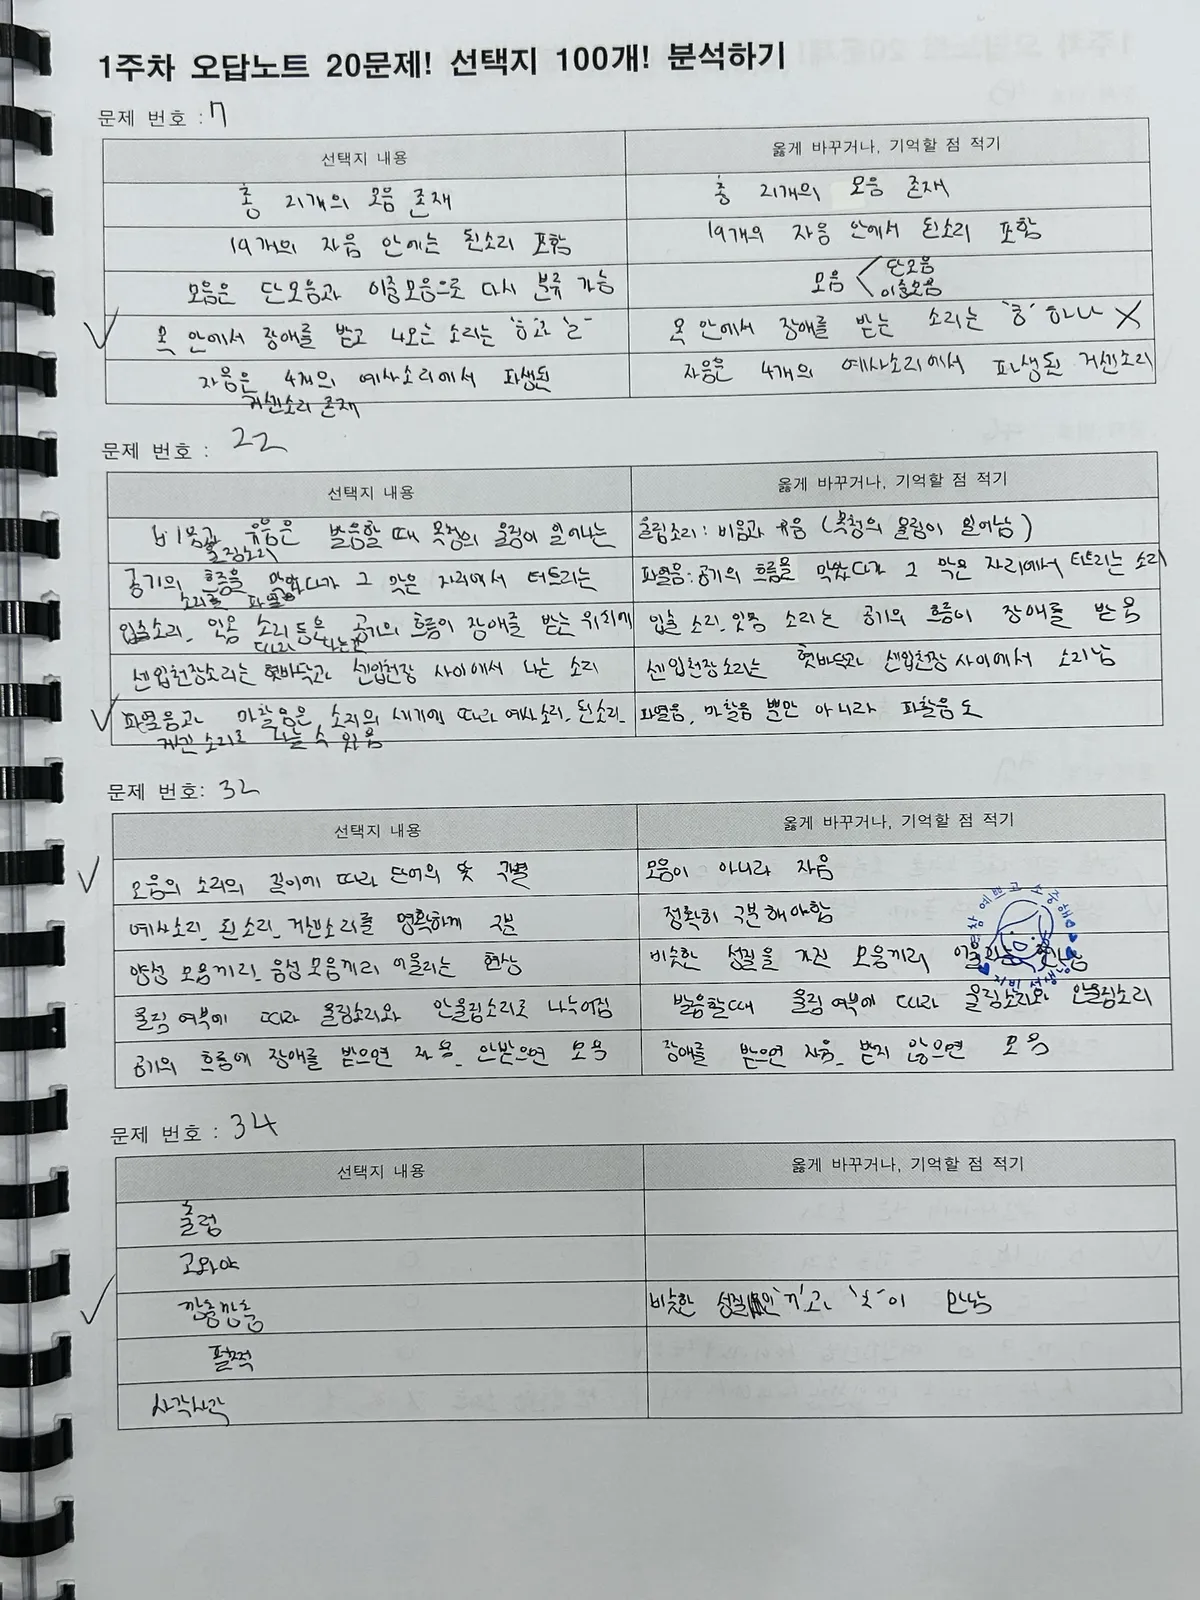 1주차 오답노트 20문제! 선택지 100개! 분석하기
문제 번호 : 7
선택지 내용 옳게 바꾸거나, 기억할 점 적기
총 21개의 모음 존재 총 21개의 모음 존재
19개의 자음 안에는 된소리 포함 19개의 자음 안에서 된소리 포함
모음은 단모음과 이중모음으로 다시 분류 가능 모음 단모음
이중모음
목 안에서 장애를 받고 나오는 소리는 'ㅎ'과 'ㄹ' 목 안에서 장애를 받는 소리는 'ㅎ' 하나 X
자음은 4개의 예사소리에서 파생된 자음은 4개의 예사소리에서 파생된 거센소리
거센소리 존재
문제 번호 : 22
선택지 내용 옳게 바꾸거나, 기억할 점 적기
비음과 유음은 발음할 때 목청의 울림이 일어나는 울림소리 : 비음과 유음 (목청의 울림이 일어남)
울림소리
공기의 흐름을 막았다가 그 막은 자리에서 터트리는 파열음 : 공기의 흐름을 막았다가 그 막은 자리에서 터트리는 소리
소리를 파열음
입술소리, 잇몸 소리 등은 공기의 흐름이 장애를 받는 위치에 입술 소리, 잇몸 소리는 공기의 흐름이 장애를 받
따라
센입천장소리는 혓바닥과 센입천장 사이에서 나는 소리 센입천장소리는 혓바닥과 센입천장 사이에서 소리남
파열음과 마찰음은 소리의 세기에 따라 예사소리, 된소리, 파열음, 마찰음 뿐만 아니라 파찰음도
거센소리로 나눌 수 있음
문제 번호: 32
선택지 내용 옳게 바꾸거나, 기억할 점 적기
모음의 소리의 길이에 따라 단어의 뜻 구별 모음이 아니라 자음
예사소리, 된소리, 거센소리를 명확하게 구분 정확히 구분해야함
양성 모음끼리, 음성 모음끼리 어울리는 현상 비슷한 성질을 가진 모음끼리
울림 여부에 따라 울림소리와 안울림소리로 나누어짐 발음할때 울림 여부에 따라 울림소리와 안울림소리
공기의 흐름에 장애를 받으면 자음, 안받으면 모음 장애를 받으면 자음, 받지 않으면 모음
문제 번호 : 34
선택지 내용 옳게 바꾸거나, 기억할 점 적기
출렁
고와야
깡충깡충 비슷한 성질 'ㅏ'과 'ㅗ'이 만남
펄쩍
사각사각